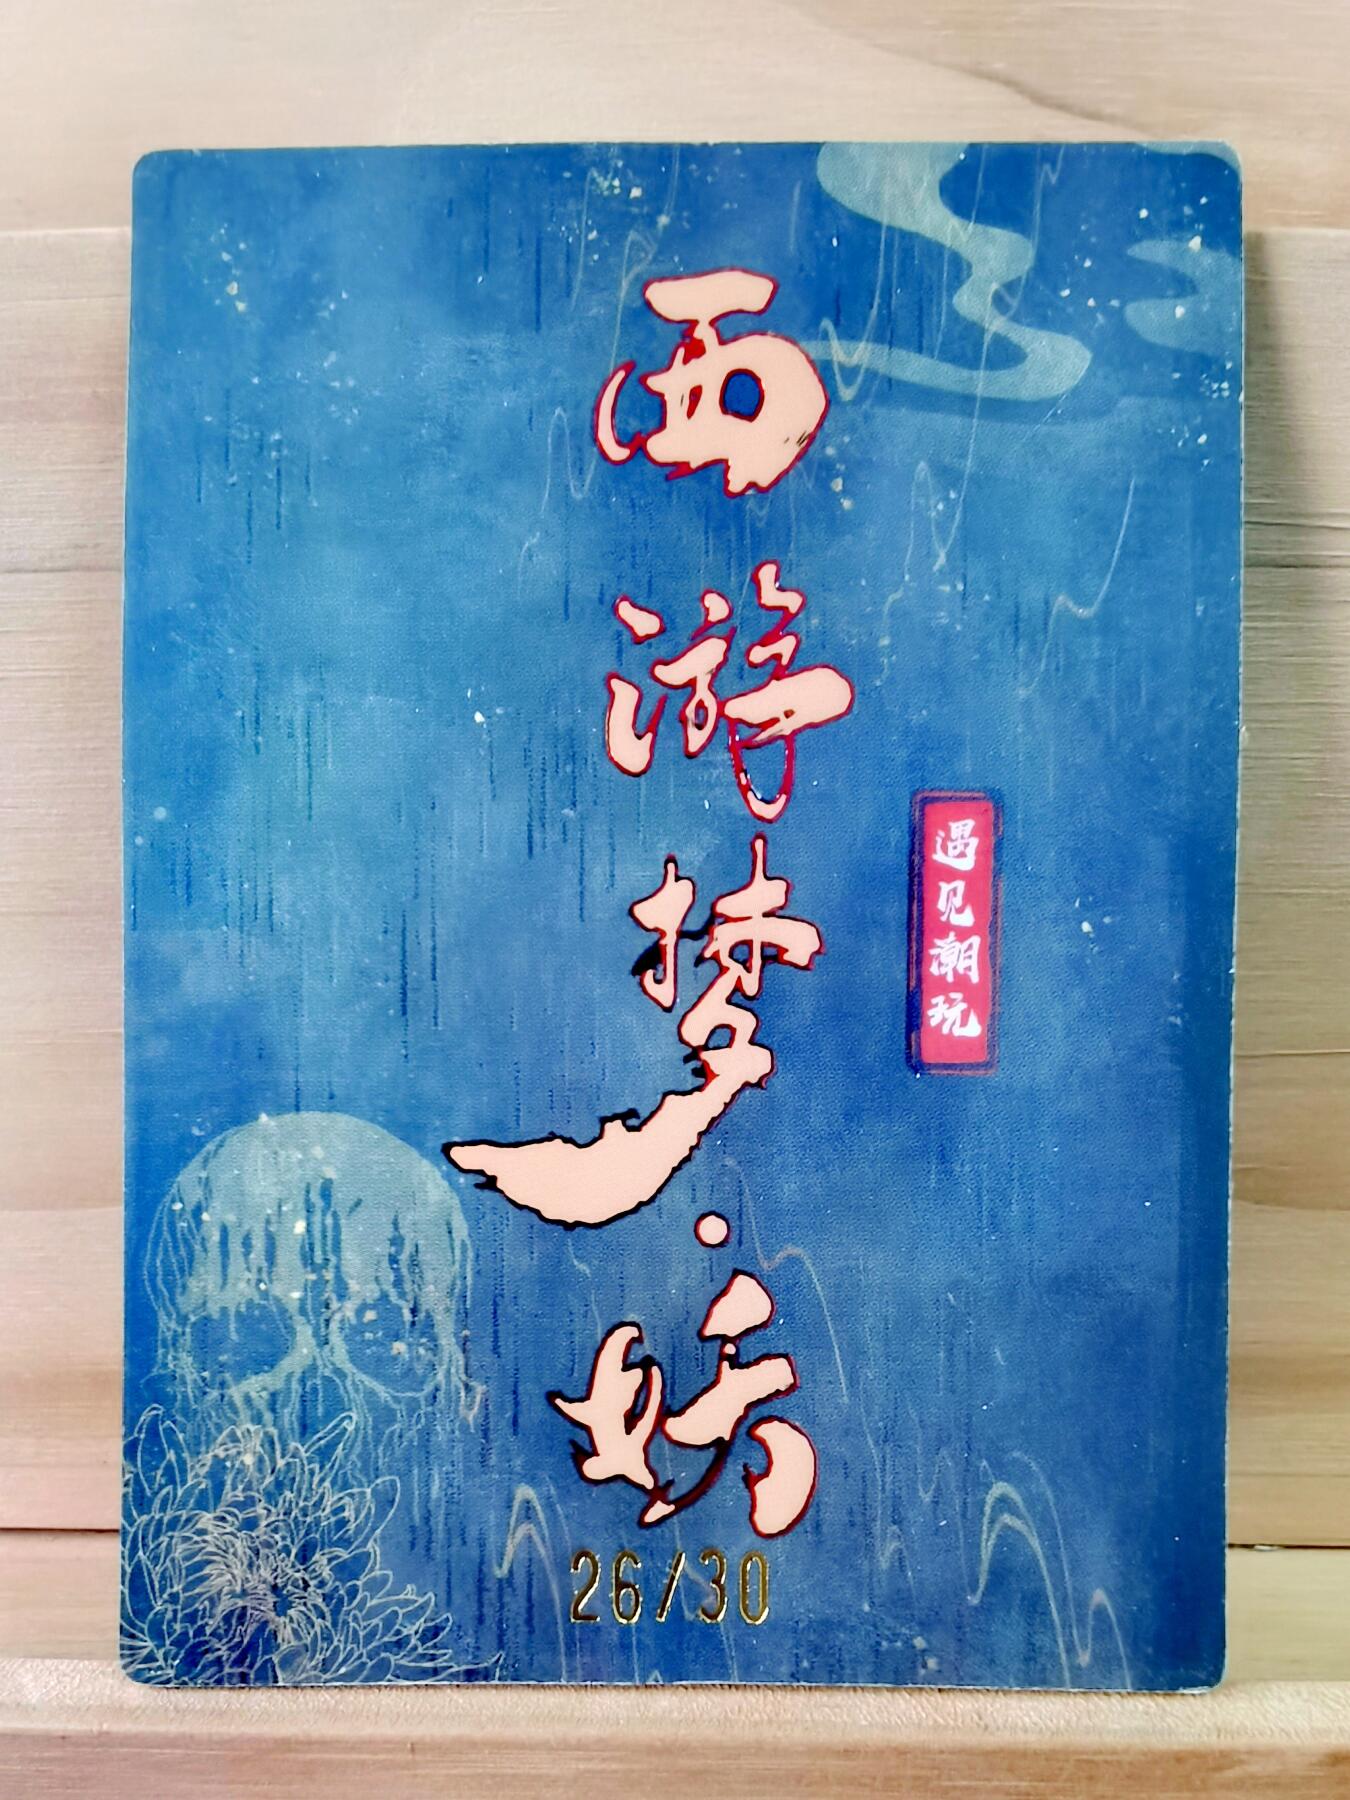 西游梦·妖
遇见潮玩
26/30